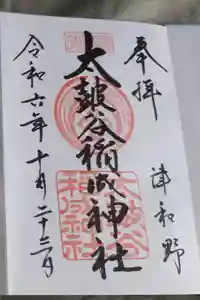 奉拝
津和野
太皷谷稲成神社
令和六年十月二十三日